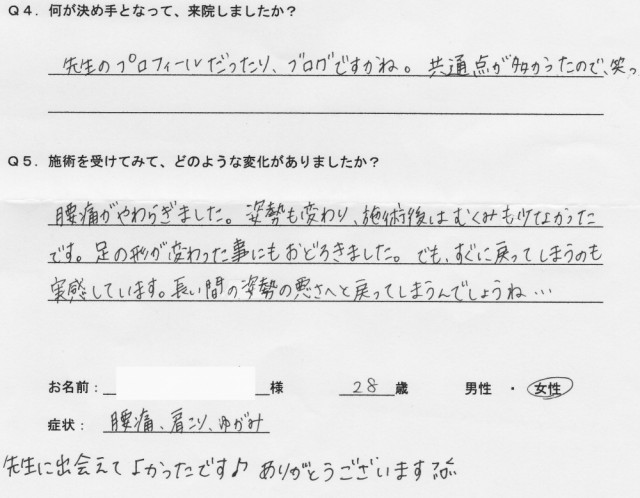 Q4. 何が決め手となって、来院しましたか?
先生のプロフィールだったり、ブログですかね。共通点が多かったので、笑っ
Q5. 施術を受けてみて、どのような変化がありましたか?
腰痛がやわらぎました。姿勢も変わり、施術後はむくみも少なかった
です。足の形が変わった事にもおどろきました。でも、すぐに戻ってしまうのも
実感しています。長い間の姿勢の悪さへと戻ってしまうんでしょうね…
お名前: 様 28歳 男性 ・ 女性
症状: 腰痛、肩こり、ゆがみ
先生に出会えてよかったです♪ ありがとうございます